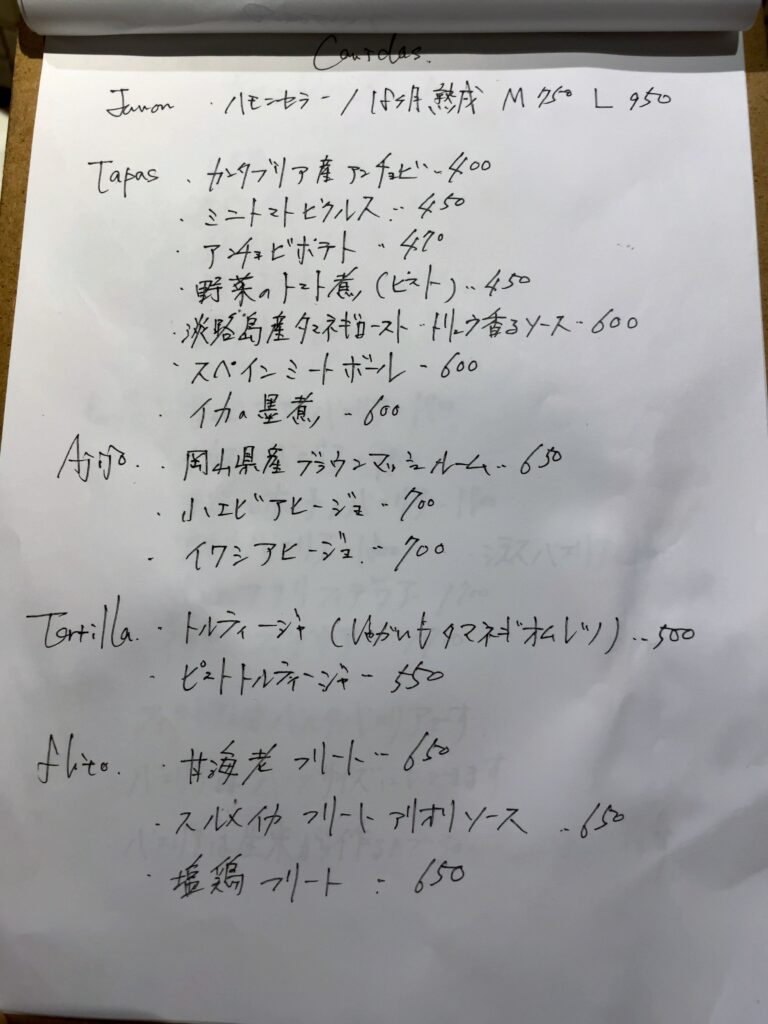 Jamon ・ハモンセラーノ 18ヶ月熟成 M 750 L 950
Tapas ・カンタブリア産アンチョビ‥400
・ミニトマトピクルス‥450
・アンチョビポテト‥470
・野菜のトマト煮(ピスト)‥450
・淡路島産タマネギロースト・トリュフ香るソース‥600
・スペインミートボール‥600
・イカの墨煮‥600
Ajijo.・岡山県産ブラウンマッシュルーム‥650
・小エビアヒージョ‥700
・イワシアヒージョ‥700
Tortilla.・トルティージャ(じゃがいもタマネギオムレツ)‥500
・ピストトルティージャ‥550
・甘海老フリート‥650
・スルメイカフリートアリオリソース‥650
・塩鶏フリート‥650